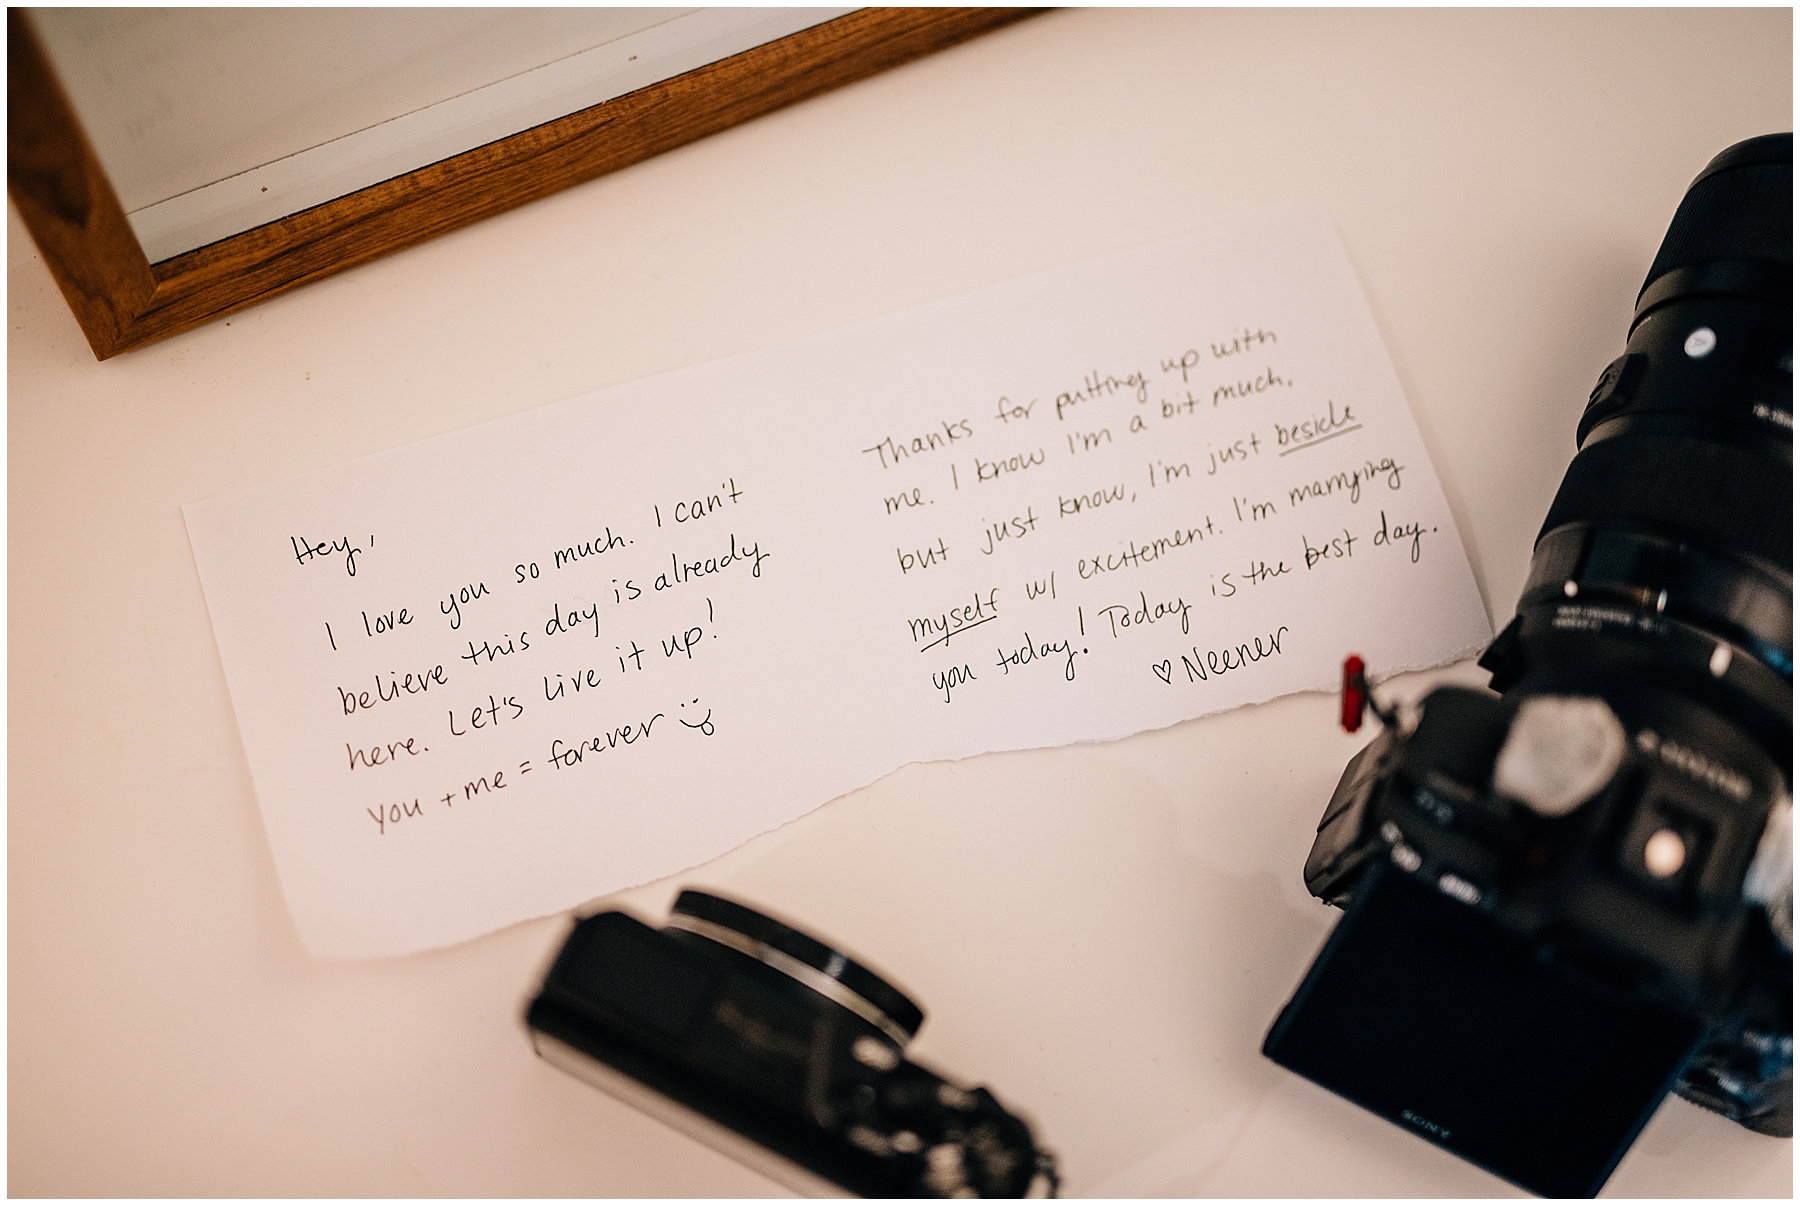 Hey,
I love you so much. I can't
believe this day is already
here. Let's live it up!
you + me = forever
Thanks for putting up with
me. I know I'm a bit much,
but just know, I'm just beside
myself w/ excitement. I'm marrying
you today! Today is the best day.
♡ Neener
SONY